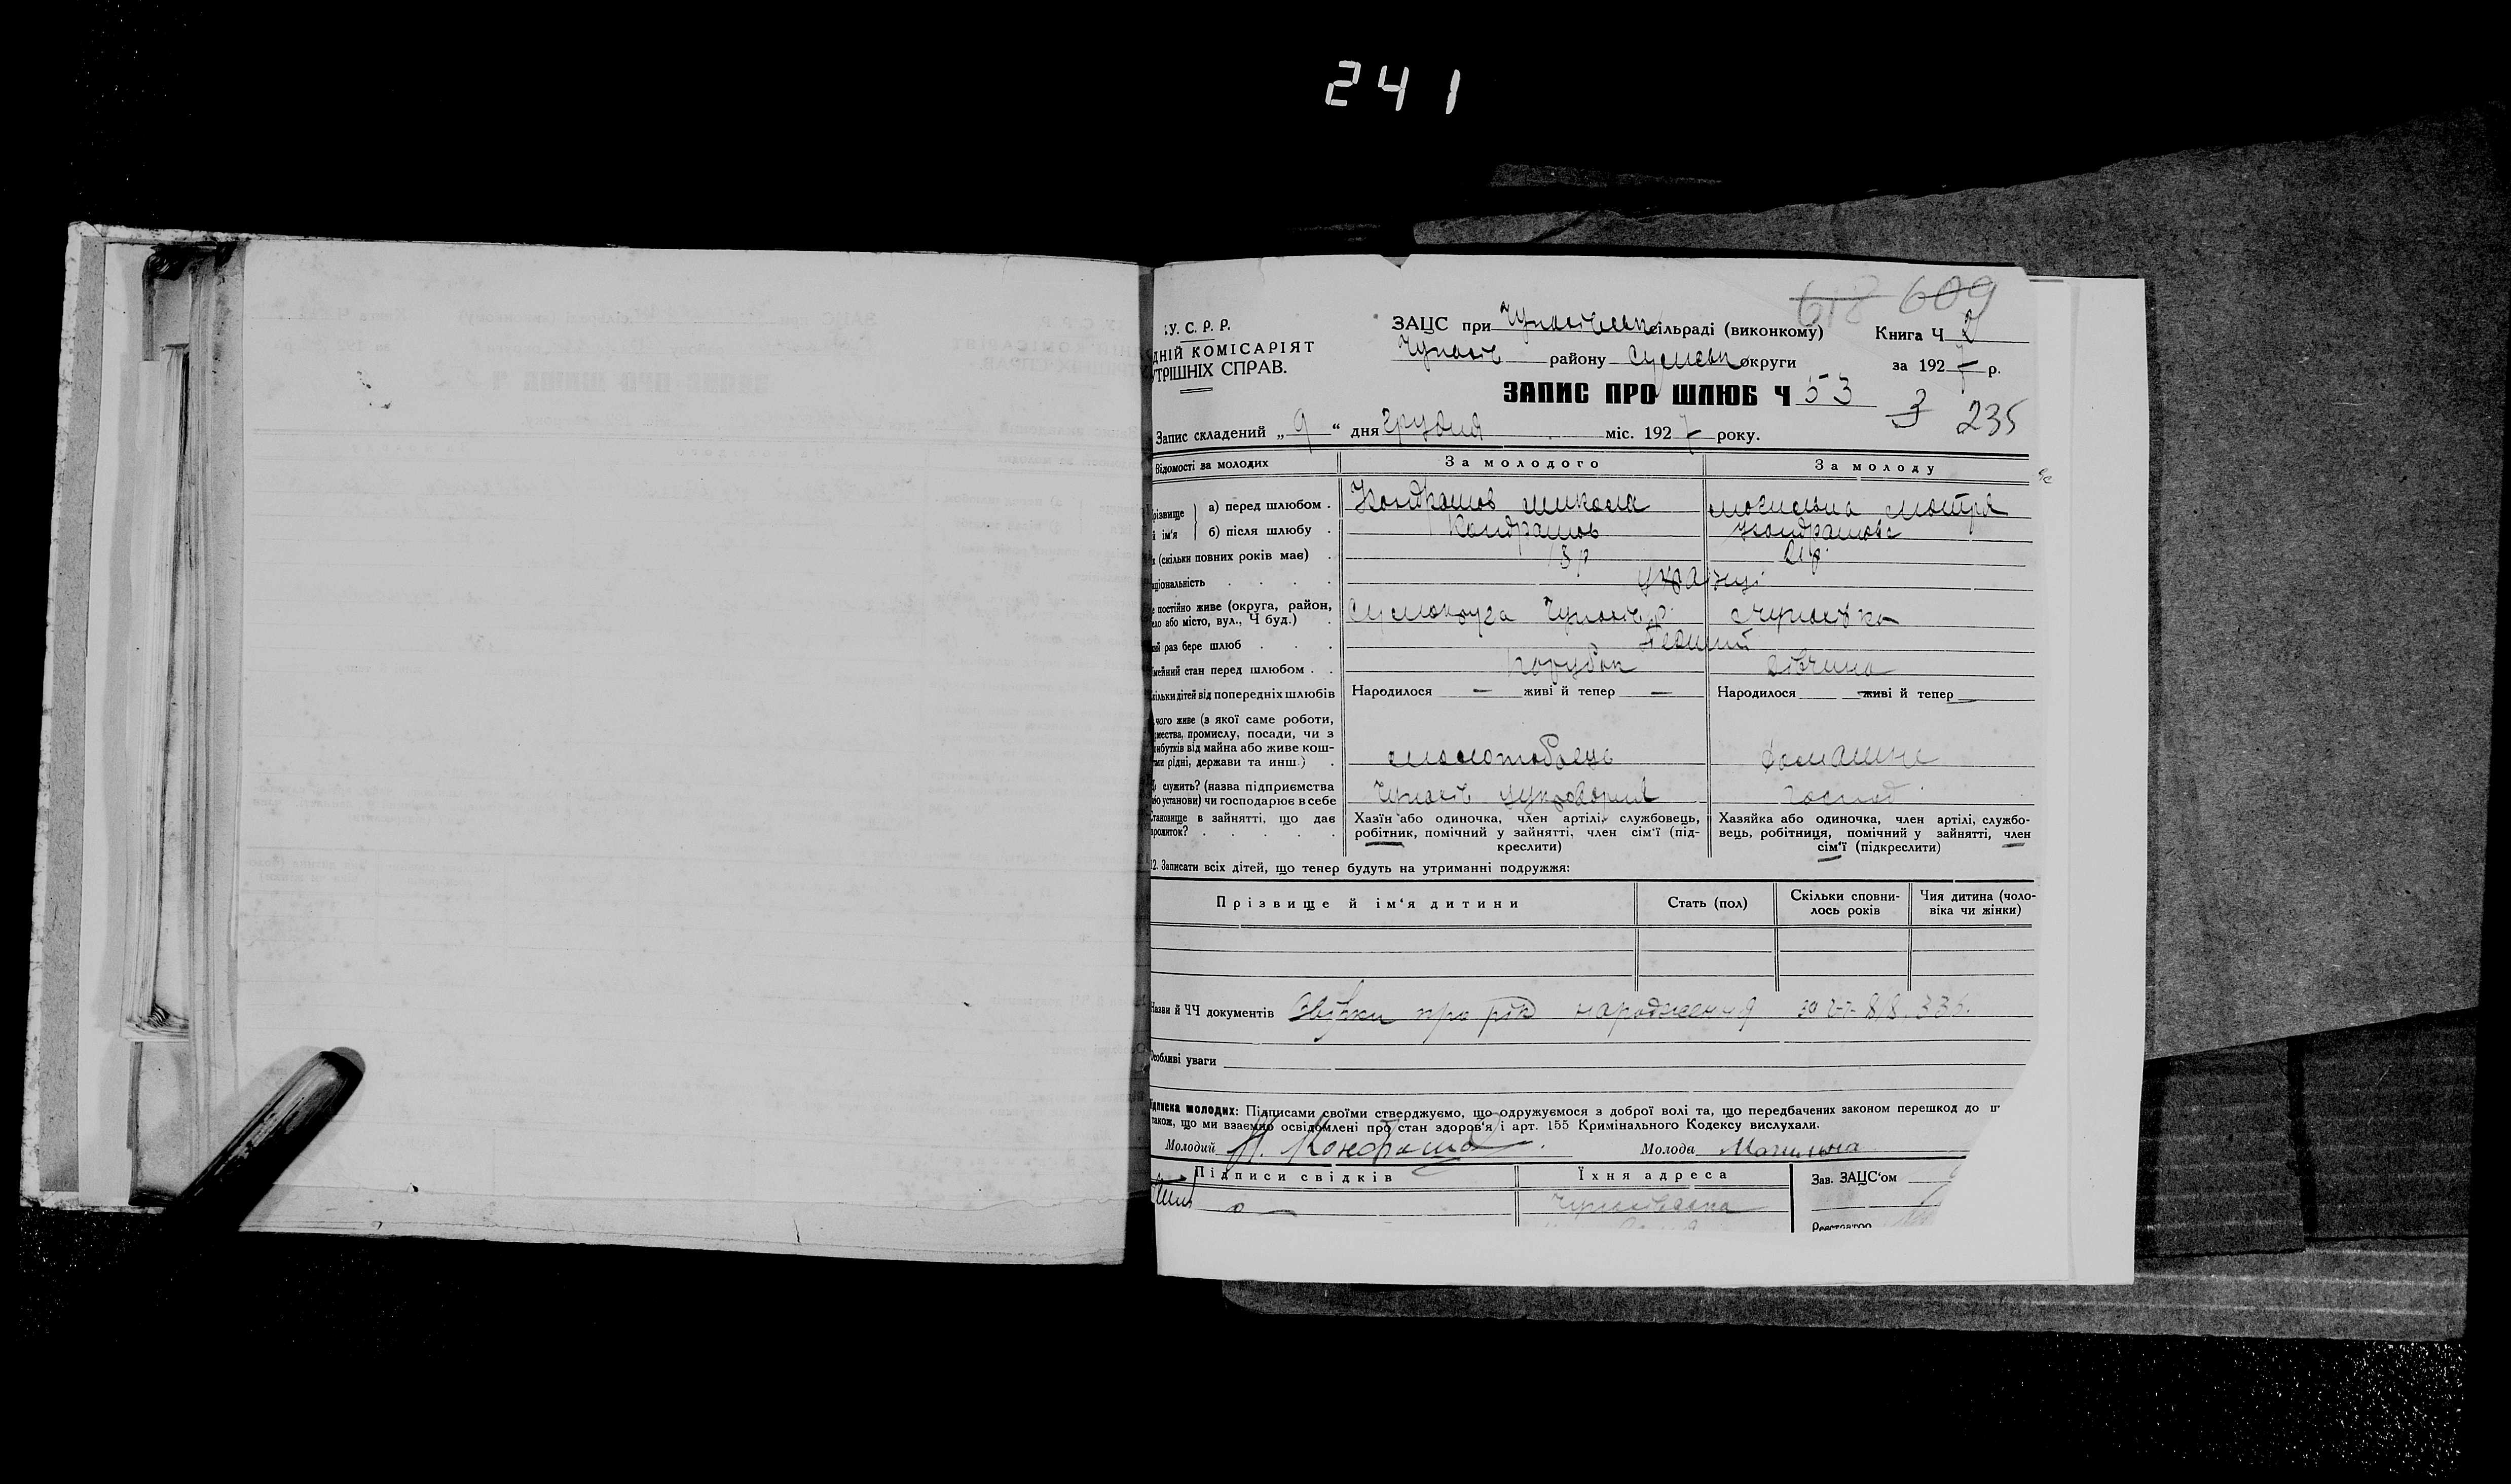 241
618 609
У. С. Р. Р.
ДНІЙ КОМІСАРІЯТ
УТРІШНІХ СПРАВ.
ЗАЦС при сільраді (виконкому) Книга Ч 2
району Сумськ округи за 1927 р.
ЗАПИС ПРО ШЛЮБ Ч 53
3 235
Запис складений „ 9 “ дня грудня міс. 1927 року.
Відомості за молодих За молодого За молоду
різвище й ім'я
а) перед шлюбом . Кондрашов Микола Могильна Мотря
б) після шлюбу . Кондрашов Кондрашова
(скільки повних років має) . 18 р
ціональність . . . . українці
постійно живе (округа, район,
ло або місто, вул., Ч буд.) .
ий раз бере шлюб . . . Перший
мейний стан перед шлюбом . . Парубок Дівчина
кільки дітей від попередніх шлюбів Народилося — живі й тепер — Народилося — живі й тепер —
чого живе (з якої саме роботи,
мества, промислу, посади, чи з
ибутків від майна або живе кош-
ми рідні, держави та инш.) . молотобоєць домашнє
служить? (назва підприємства
бо установи) чи господарює в себе цукроварня господ
тановище в зайнятті, що дає
прожиток? . . . . .
Хазїн або одиночка, член артілі, службовець,
робітник, помічний у зайнятті, член сім'ї (під-
креслити)
Хазяйка або одиночка, член артілі, службо-
вець, робітниця, помічний у зайнятті, член
сім'ї (підкреслити)
12. Записати всіх дітей, що тепер будуть на утриманні подружжя:
Прізвище й ім'я дитини Стать (пол) Скільки сповни-
лось років Чия дитина (чоло-
віка чи жінки)
Назви й ЧЧ документів Звізки про рік народження
Особливі уваги
ідписка молодих: Підписами своїми стверджуємо, що одружуємося з доброї волі та, що передбачених законом перешкод до
також, що ми взаємно освідомлені про стан здоров'я і арт. 155 Кримінального Кодексу вислухали.
Молодий М. Кондрашов Молода Могильна
Підписи свідків Їхня адреса Зав. ЗАЦС'ом
Реєстратор